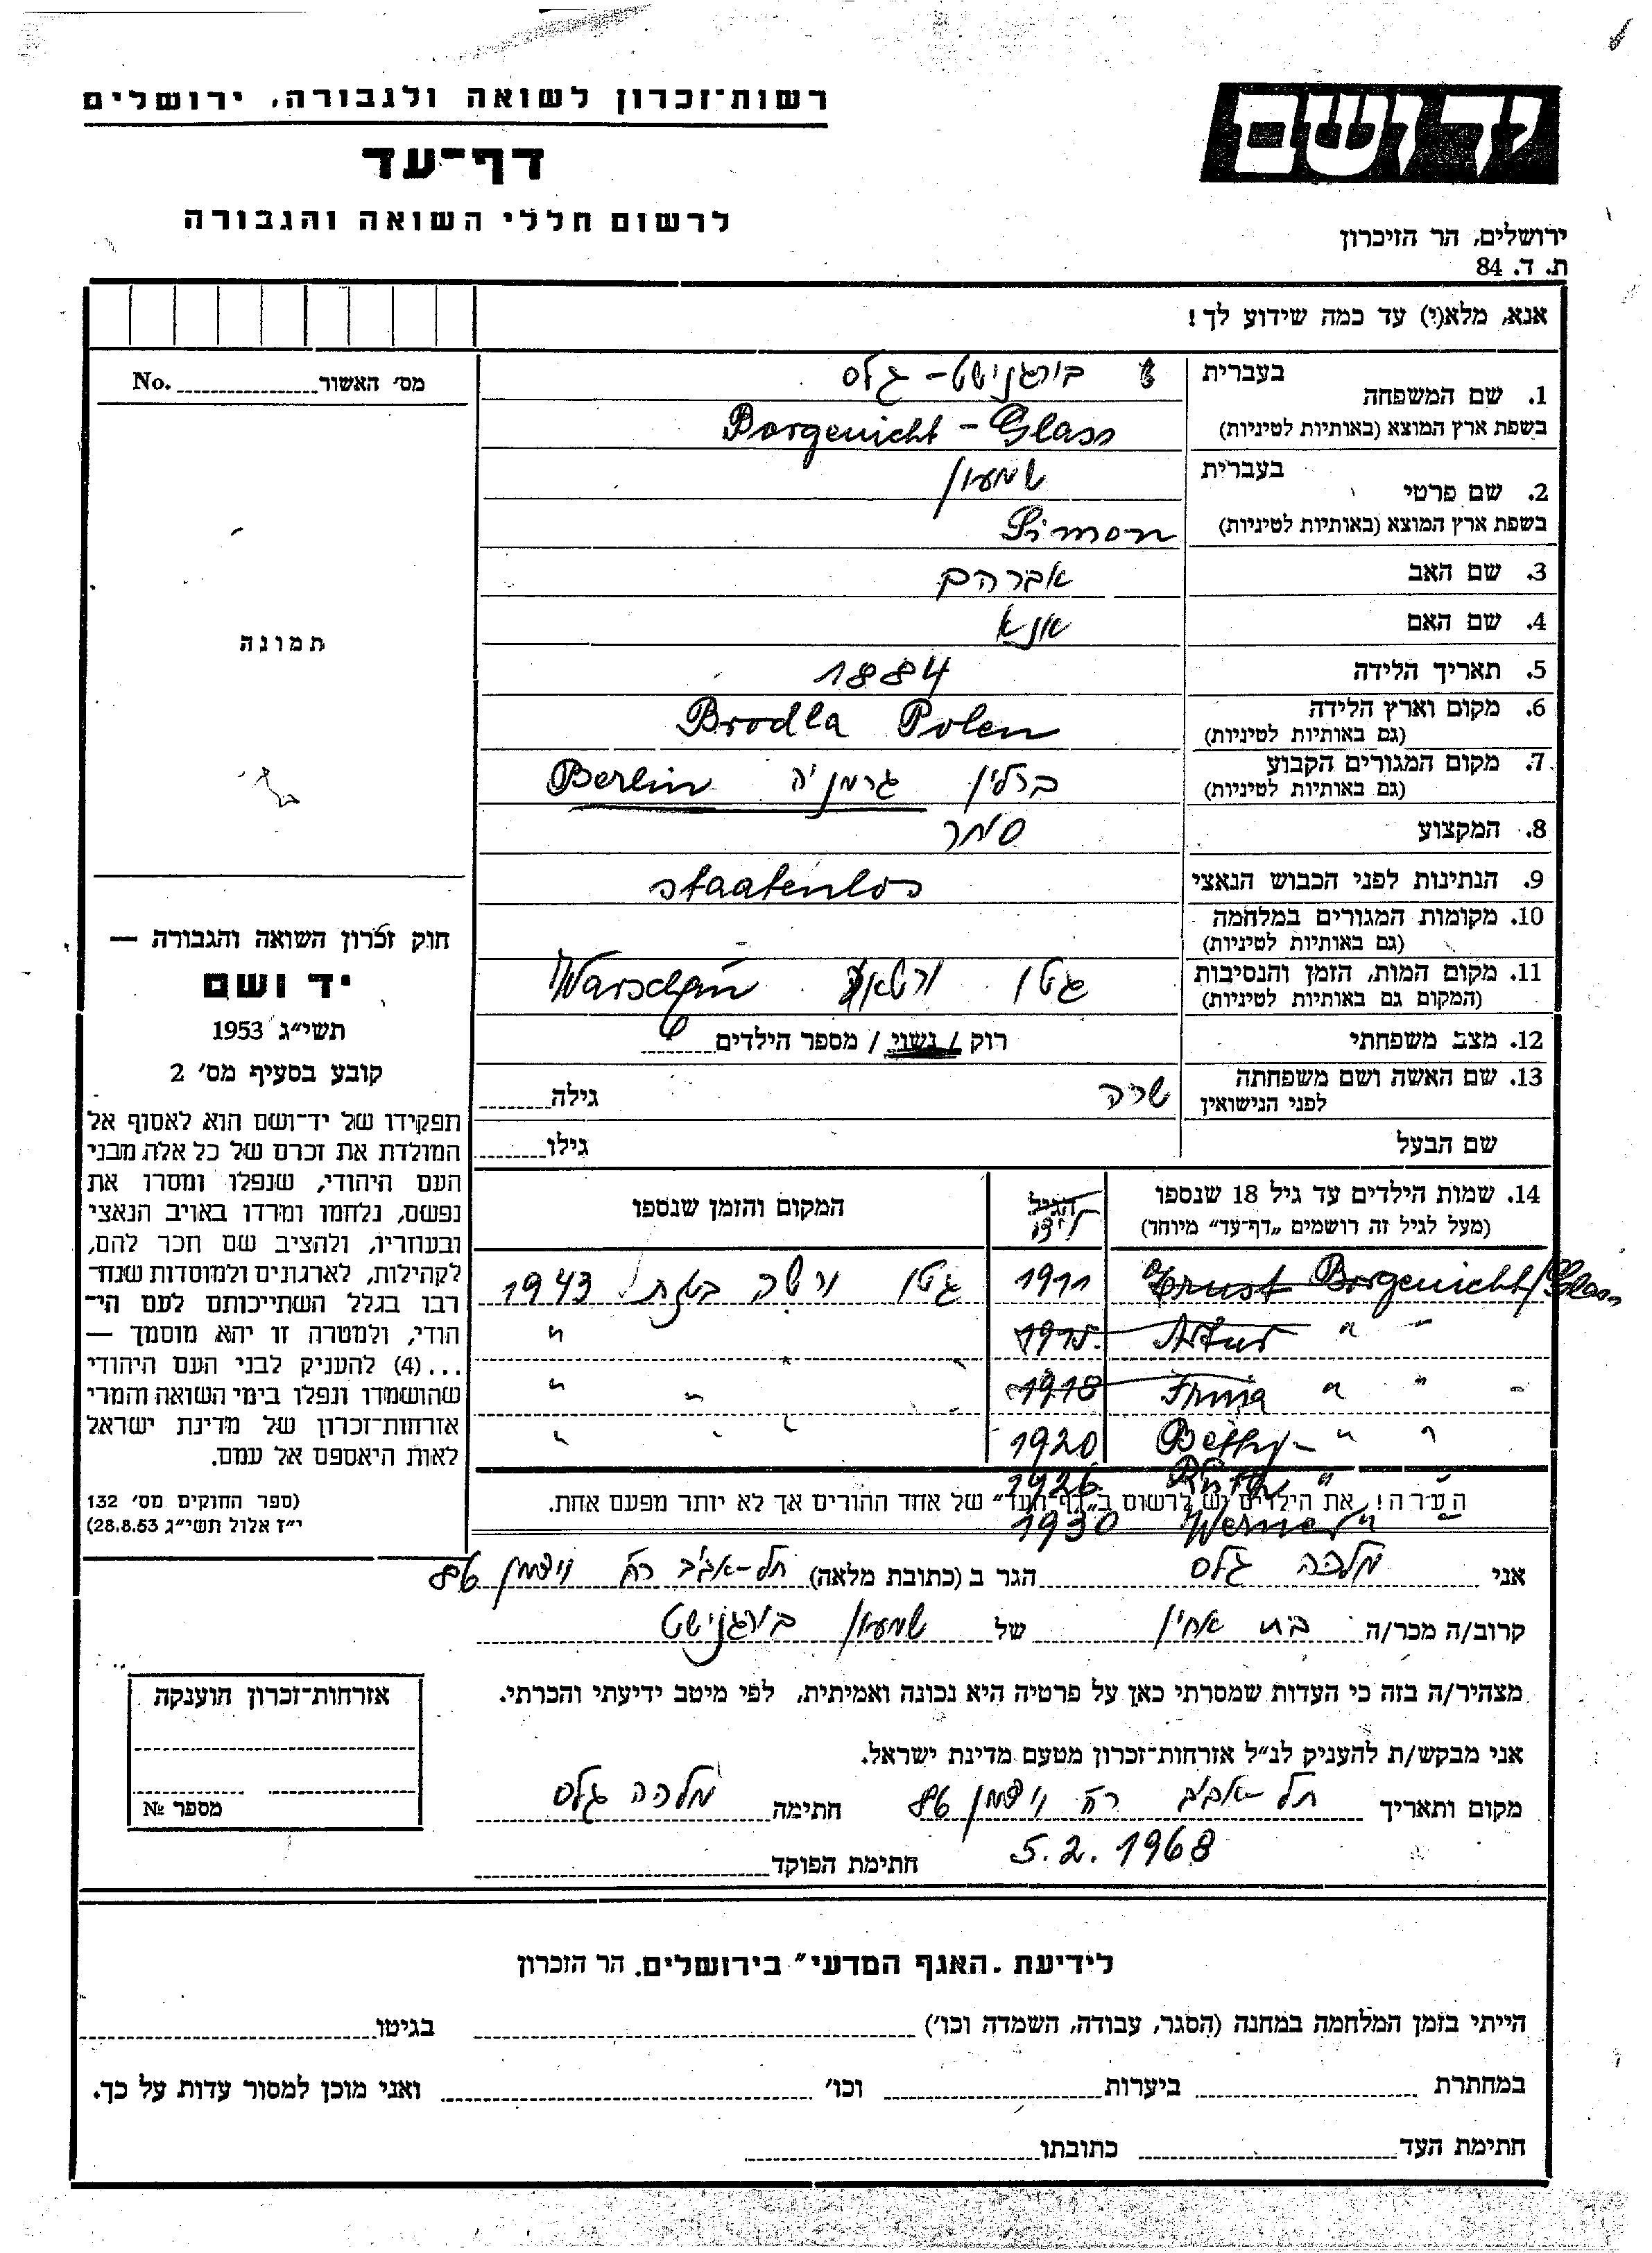 רשות־זכרון לשואה ולגבורה, ירושלים
דף־עד
לרשום חללי השואה והגבורה
יד ושם
ירושלים, הר הזיכרון
ת. ד. 84
אנא, מלא(י) עד כמה שידוע לך!
מס׳ האשור No.
תמונה
1. שם המשפחה
בעברית בורגנישט - גלס
בשפת ארץ המוצא (באותיות לטיניות) Borgenicht - Glass
2. שם פרטי
בעברית שמעון
בשפת ארץ המוצא (באותיות לטיניות) Simon
3. שם האב אברהם
4. שם האם אנא
5. תאריך הלידה 1884
6. מקום וארץ הלידה Brodla Polen
(גם באותיות לטיניות)
7. מקום המגורים הקבוע ברלין גרמניה Berlin
(גם באותיות לטיניות)
8. המקצוע סוחר
9. הנתינות לפני הכבוש הנאצי staatenlos
10. מקומות המגורים במלחמה
(גם באותיות לטיניות)
11. מקום המות, הזמן והנסיבות גטו Warschau
(המקום גם באותיות לטיניות)
12. מצב משפחתי רוק / נשוי / מספר הילדים 6
13. שם האשה ושם משפחתה שרה גילה
לפני הנישואין
שם הבעל גילו
14. שמות הילדים עד גיל 18 שנספו הגיל המקום והזמן שנספו
(מעל לגיל זה רושמים „דף־עד״ מיוחד)
Ernst Borgenicht/Glass 1911 גטו ורשה 1943
Artur " " 1915 "
Irma " " 1918 " "
Betty - " " 1920 " "
Ruth " 1926
הערה! את הילדים יש לרשום ב„דף־העד״ של אחד ההורים אך לא יותר מפעם אחת.
Werner " 1930
חוק זכרון השואה והגבורה —
יד ושם
תשי״ג 1953
קובע בסעיף מס׳ 2
תפקידו של יד־ושם הוא לאסוף אל
המולדת את זכרם של כל אלה מבני
העם היהודי, שנפלו ומסרו את
נפשם, נלחמו ומרדו באויב הנאצי
ובעוזריו, ולהציב שם וזכר להם,
לקהילות, לארגונים ולמוסדות שנח־
רבו בגלל השתייכותם לעם הי־
הודי, ולמטרה זו יהא מוסמך —
...(4) להעניק לבני העם היהודי
שהושמדו ונפלו בימי השואה והמרי
אזרחות־זכרון של מדינת ישראל
לאות היאספם אל עמם.
(ספר החוקים מס׳ 132
י״ז אלול תשי״ג 28.8.53)
אני מלכה גלס הגר ב (כתובת מלאה) תל-אביב רח׳ ויצמן 86
קרוב/ה מכר/ה בת אחין של שמעון בורגנישט
מצהיר/ה בזה כי העדות שמסרתי כאן על פרטיה היא נכונה ואמיתית, לפי מיטב ידיעתי והכרתי.
אני מבקש/ת להעניק לנ״ל אזרחות־זכרון מטעם מדינת ישראל.
מקום ותאריך תל-אביב רח׳ ויצמן 86 חתימה מלכה גלס
5.2.1968
חתימת הפוקד
אזרחות־זכרון הוענקה
מספר №
לידיעת „האגף המדעי״ בירושלים. הר הזכרון
הייתי בזמן המלחמה במחנה (הסגר, עבודה, השמדה וכו׳) בגיטו
במחתרת ביערות וכו׳ ואני מוכן למסור עדות על כך.
חתימת העד כתובתו